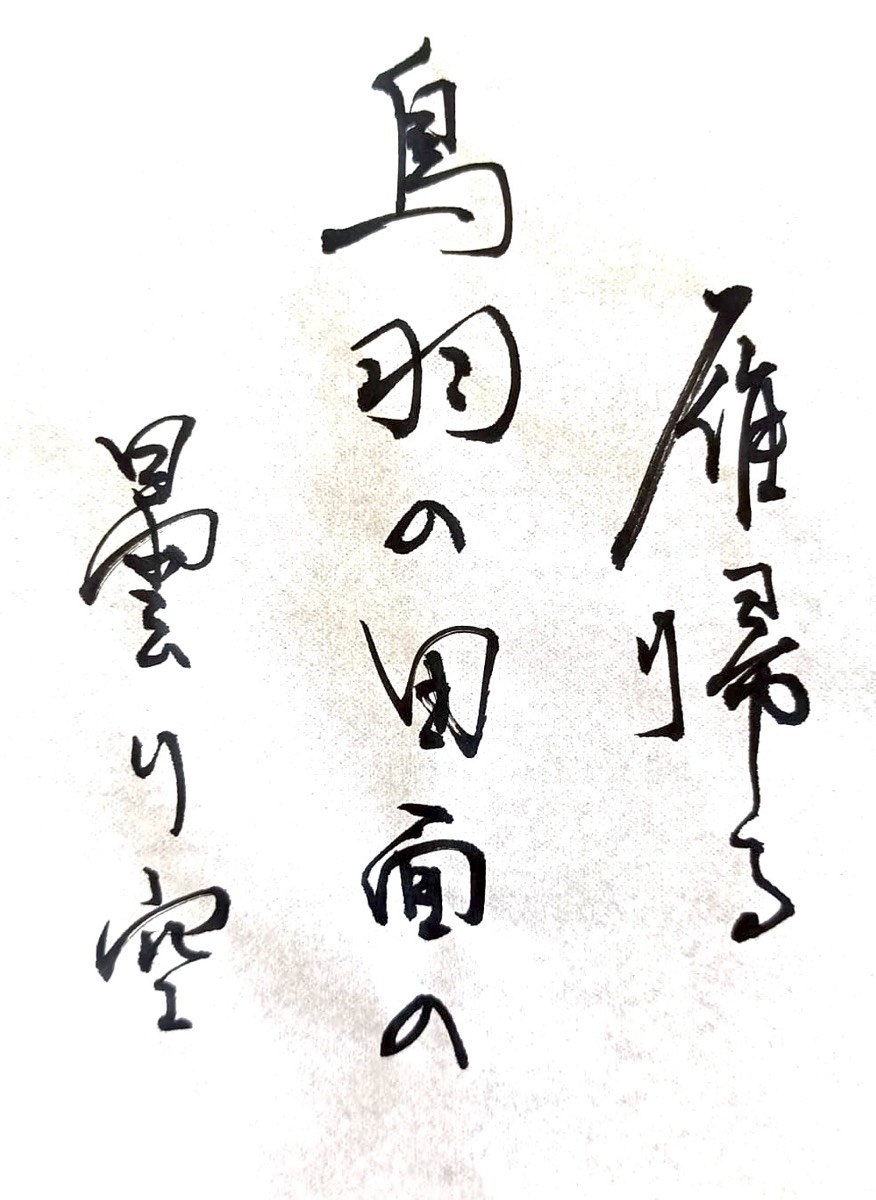 雁帰る
鳥羽の田面の
曇り空